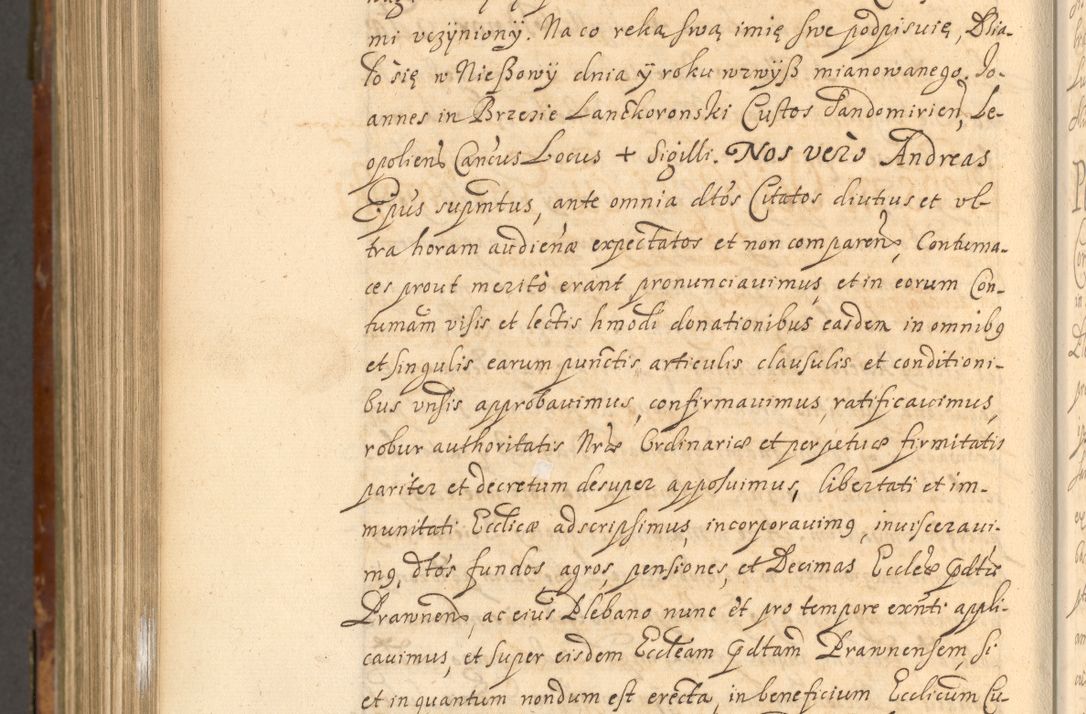 mi vczÿnionÿ. Na co ręką swą imię swe podpisuię, Dźia-
ło się w Nießowÿ dnia ÿ roku wzwÿß mianowanego. Jo-
annes in Brzezie Lanckoronski Custos Sandomirien, Le-
opolien Cancus Locus + Sigilli. Nos verò Andreas
Epus supmtus, ante omnia dtos Citatos diutius et vl-
tra horam audienæ expectatos et non comparen, Contuma-
ces prout meritò erant pronunciauimus, et in eorum Con-
tumam visis et lectis hmodi donationibus easdem in omnibq
et singulis earum punctis articulis clausulis et conditioni-
bus vnsis approbauimus, confirmauimus, ratificauimus,
robur authoritatis Nræ Ordinariæ et perpetuæ firmitatis
pariter et decretum desuper apposuimus, libertati et im-
munitati Ecclicæ adscripsimus, incorporauimq, inuiscerauí-
mq, dtos fundos agros, pensiones, et Decimas Eccleæ pdtæ
Prawnen, ac eius Plebano nunc et pro tempore exnti appli-
cauimus, et super eisdem Eccleam pdtam Prawnensem, si
et in quantum nondum est erecta, in beneficium Ecclicum Cu-